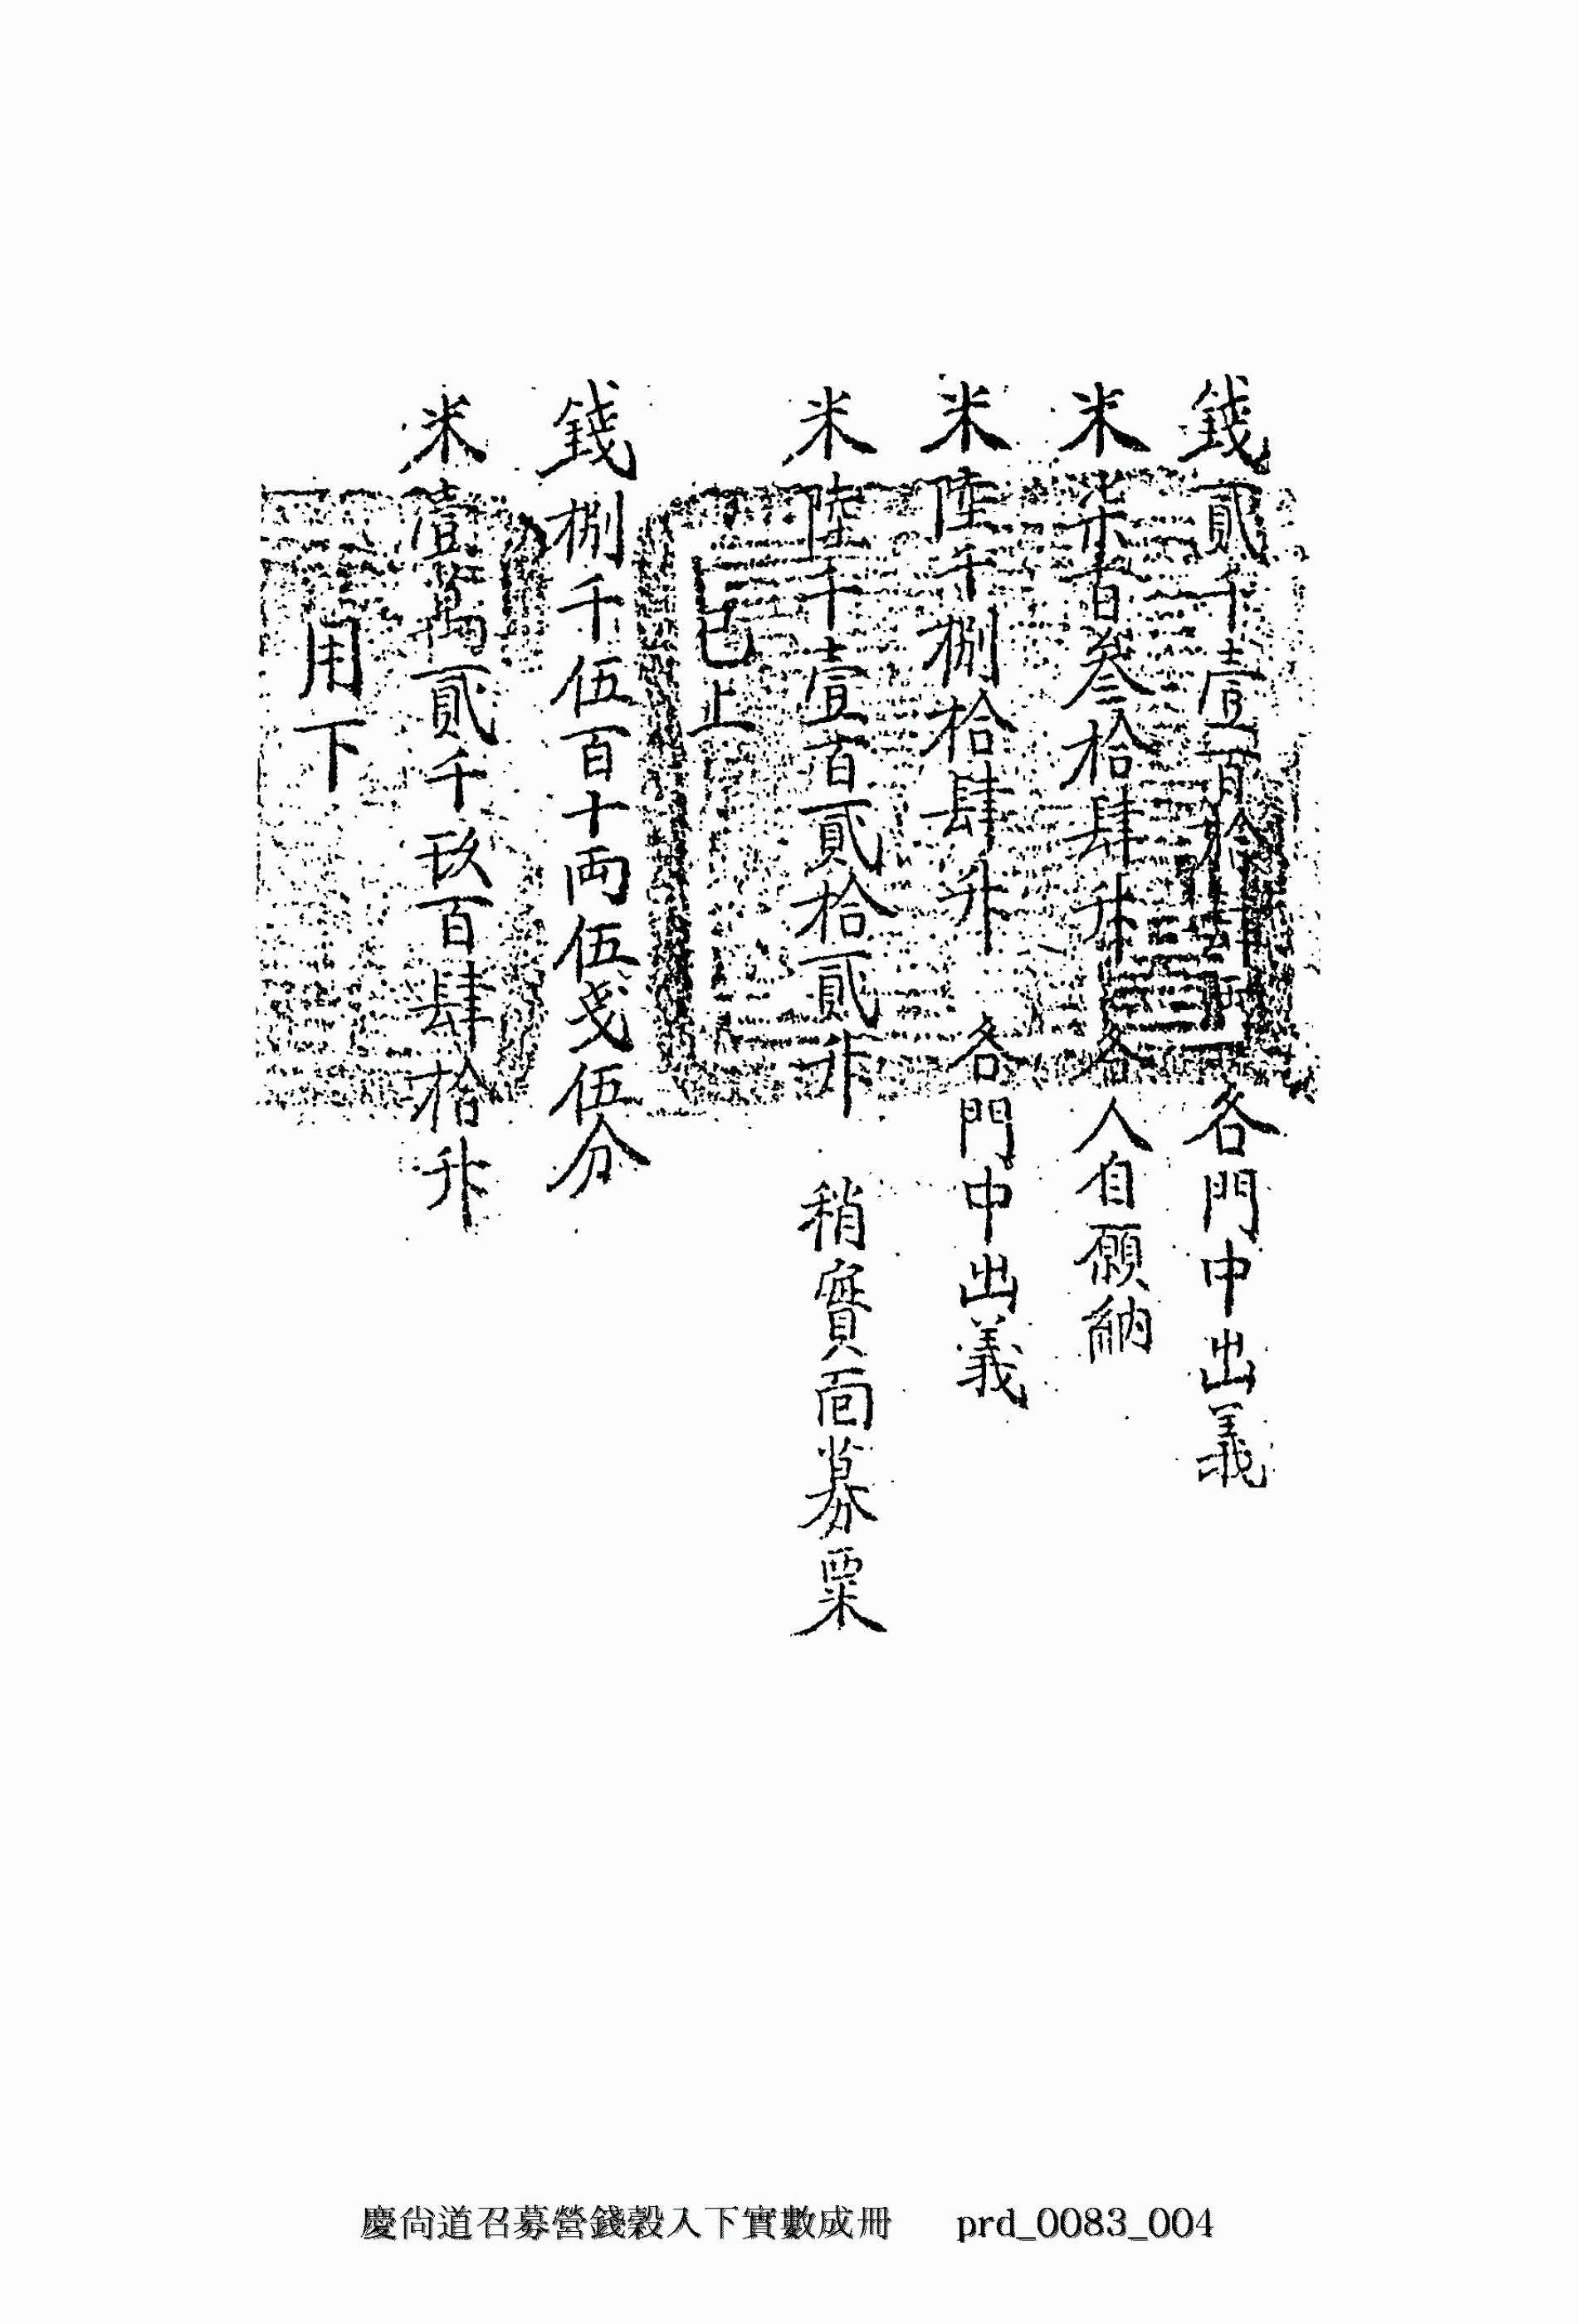 錢貳千壹百拾両 各門中出義
米柒百叄拾肆升 各人自願納
米陸千捌拾肆升 各門中出義
米陸千壹百貳拾貳升 稍實面募粟
已上
錢捌千伍百十両伍戔伍分
米壹萬貳千玖百肆拾升
用下
慶尙道召募營錢穀入下實數成冊 prd_0083_004